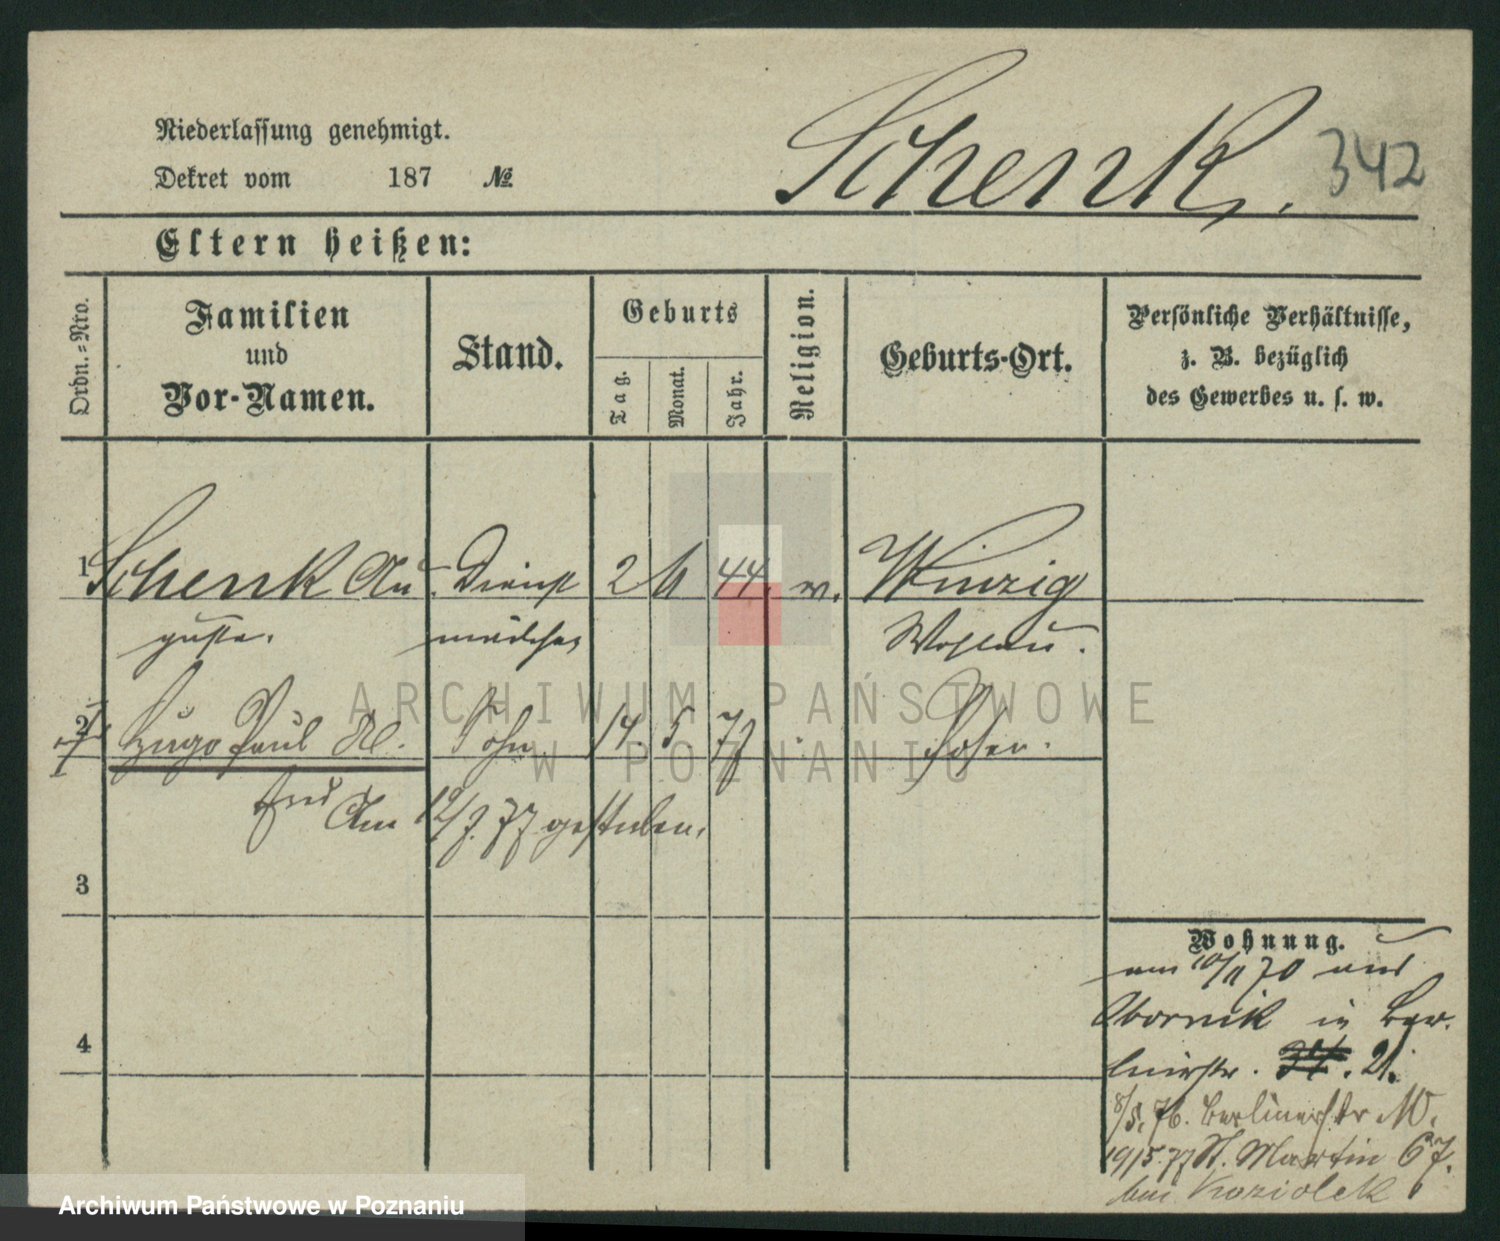 Schenk. 342
Niederlassung genehmigt.
Dekret vom 187 №
Eltern heißen:
Ordn.-Nro.
Familien
und
Vor-Namen.
Stand.
Geburts
Tag.
Monat.
Jahr.
Religion.
Geburts-Ort.
Persönliche Verhältnisse,
z. B. bezüglich
des Gewerbes u. s. w.
1 Schenk Au- Dienst 2 44. Winzig
guste. mädchen Wohlau.
2 Hugo Paul Sohn 14. 5 77 Posen.
Am 12/7. 77 gestorben.
3
4
Wohnung.
am 10/11 70 aus
Obornik in Ber-
linerstr. 21.
8/5. 76. Berlinerstr
19/5. 77 St. Martin 67.
bei Koziolek
ARCHIWUM PAŃSTWOWE
W POZNANIU
Archiwum Państwowe w Poznaniu